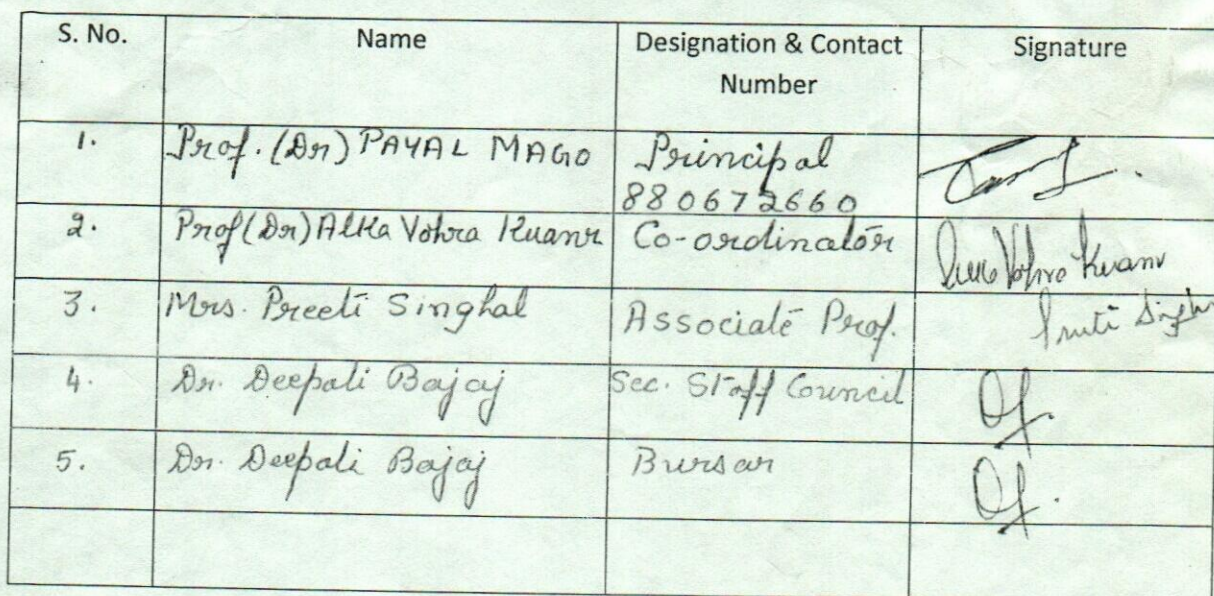 S. No. Name Designation & Contact Number Signature
1. Prof. (Dr) PAYAL MAGO Principal
880672660
2. Prof(Dr) Alka Vohra Kuanr Co-ordinator Vohra Kuanr
3. Mrs. Preeti Singhal Associate Prof.
4. Dr. Deepali Bajaj Sec. Staff Council
5. Dr. Deepali Bajaj Bursar